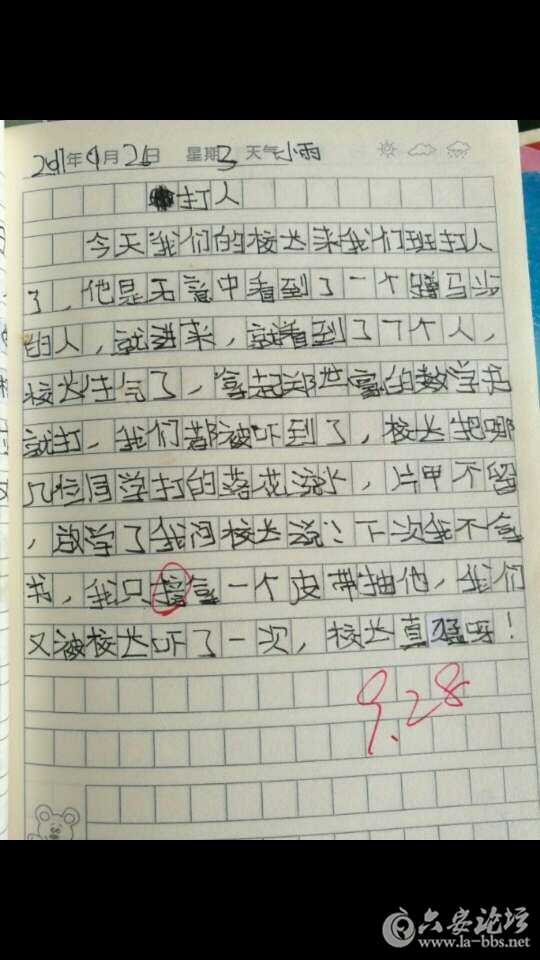 2017年9月26日 星期3 天气小雨
打人
今天我们的校长来我们班打人
了，他是无意中看到了一个蹲马步
的人，就进来，就看到了7个人，
校长生气了，拿起郑世寧的数学书
就打，我们都被吓到了，校长把那
几位同学打的落花流水，片甲不留
，放学了我问校长说：下次我不拿
书，我只拿一个皮带抽他，我们
又被校长吓了一次，校长真猛呀！
9.28
六安论坛
www.la-bbs.net